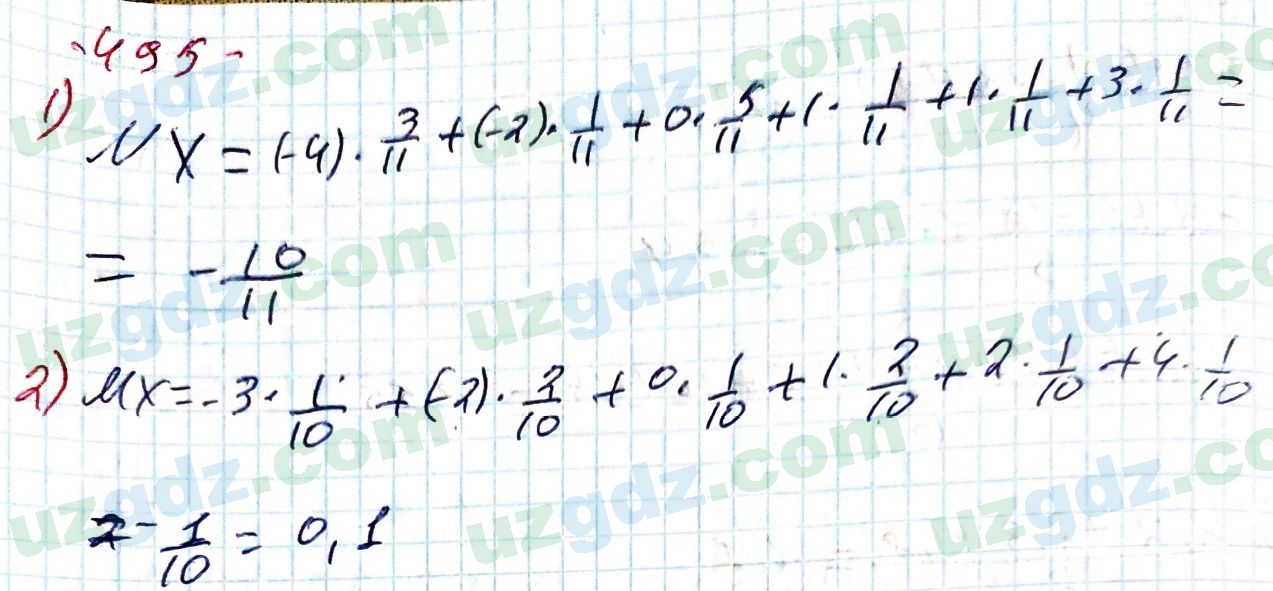 -495-
1) MX = (-4) · 3/11 + (-2) · 1/11 + 0 · 5/11 + 1 · 1/11 + 1 · 1/11 + 3 · 1/11 =
= - 10/11
2) MX = -3 · 1/10 + (-2) · 2/10 + 0 · 1/10 + 1 · 2/10 + 2 · 1/10 + 4 · 1/10
= - 1/10 = 0,1
uzgdz.com